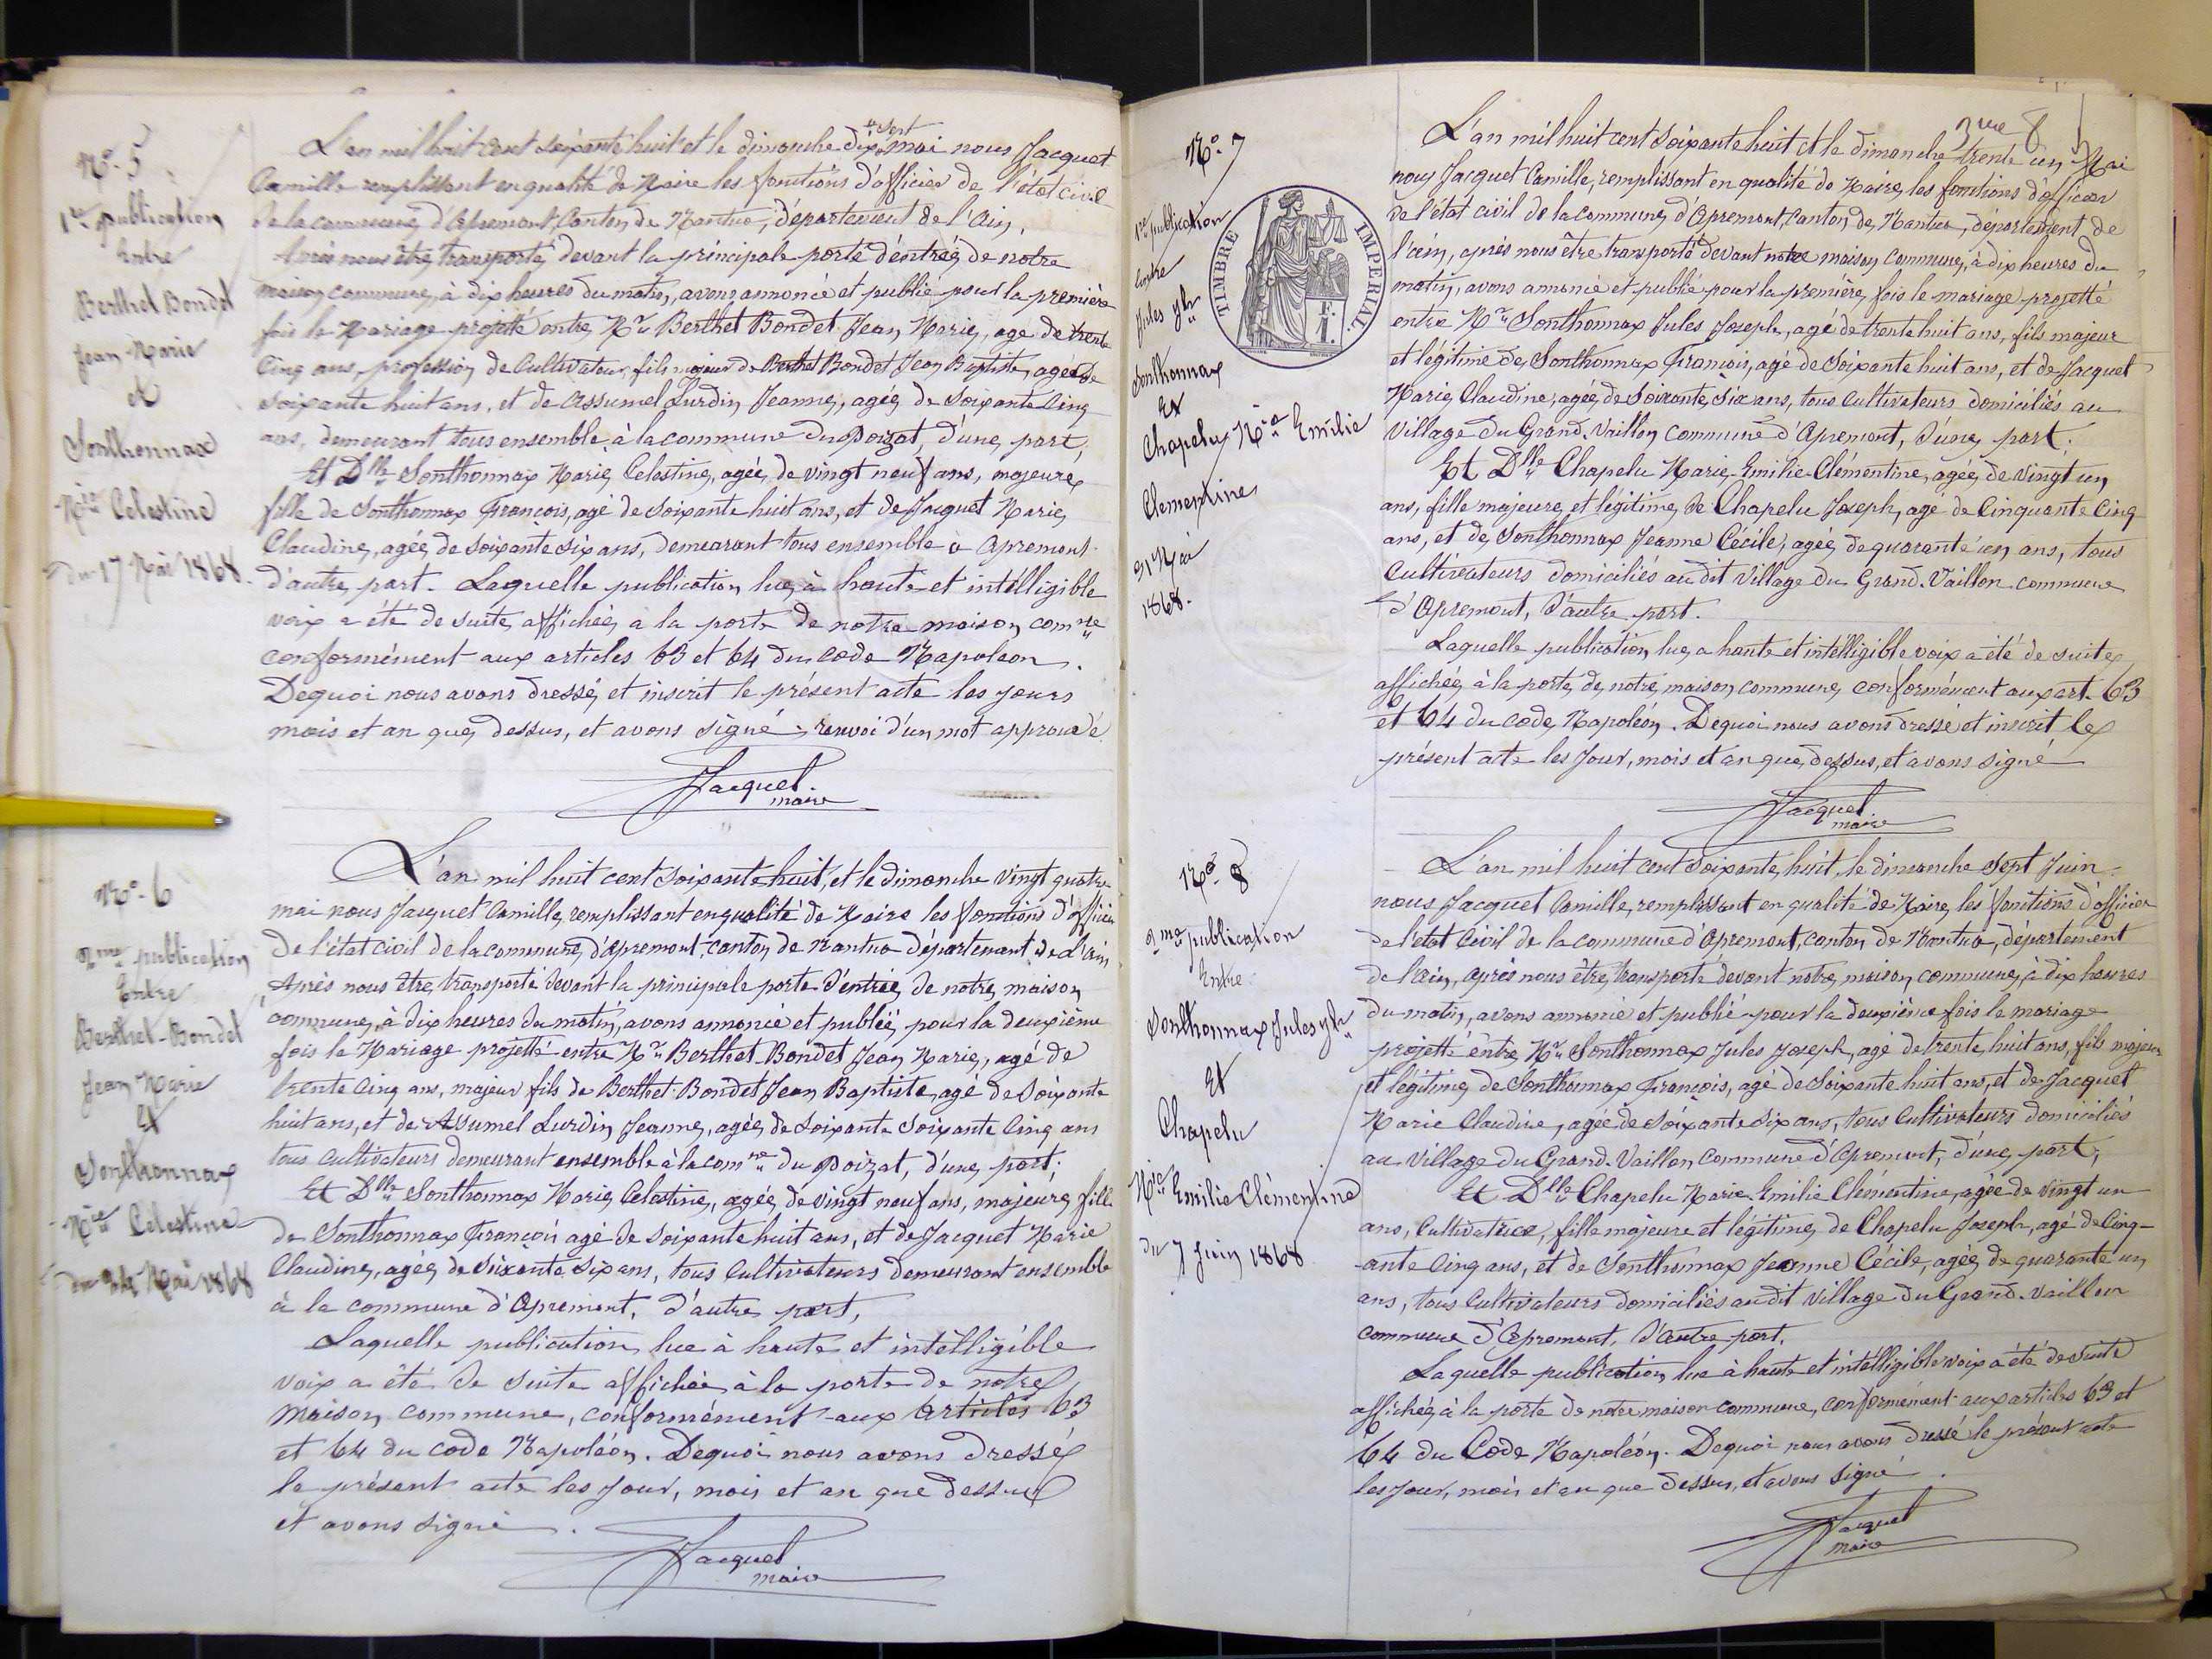 No. 5
1re publication
Entre
Berthet Bondet
Jean-Marie
&
Sonthonnax
Mie Celestine
du 17 Mai 1868.
L'an mil huit cent soixante huit et le dimanche dix + mai nous Jacquet
+ sept
Camille remplissant en qualité de Maire les fonctions d'officier de l'état civil
de la commune d'Apremont, Canton de Nantua, département de l'Ain,
Après nous être transporté devant la principale porte d'entrée de notre
maison commune, à dix heures du matin, avons annoncé et publié pour la première
fois le Mariage projetté entre Mr Berthet Bondet Jean Marie, agé de trente
Cinq ans, profession de Cultivateur, fils majeur de Berthet Bondet Jean Baptiste, agé de
soixante huit ans, et de Assumel Lurdin Jeanne, agée de soixante Cinq
ans, demeurant tous ensemble à la commune du Poizat, d'une part,
Et Dlle Sonthonnax Marie Celestine, agée de vingt neuf ans, majeure
fille de Sonthonnax François, agé de soixante huit ans, et de Jacquet Marie
Claudine, agée de soixante six ans, demeurant tous ensemble à Apremont
d'autre part. Laquelle publication lue à haute et intélligible
voix a été de suite affichée a la porte de notre maison comne
conformément aux articles 63 et 64 du code Napoleon.
Dequoi nous avons dressé et inscrit le présent acte les jours
mois et an que dessus, et avons signé. renvoi d'un mot approuvé
Jacquet
maire
No. 6
2me publication
Entre
Berthet-Bondet
Jean Marie
Et
Sonthonnax
Mie Celestine
du 24 Mai 1868
L'an mil huit cent soixante huit, et le dimanche vingt quatre
mai nous Jacquet Camille, remplissant en qualité de Maire les fonctions d'officier
de l'état civil de la commune d'Apremont, canton de Nantua département de l'ain
Après nous être transporté devant la principale porte d'entrée de notre maison
commune, à dix heures du matin, avons annoncé et publié, pour la deuxième
fois le Mariage projetté entre Mr Berthet-Bondet Jean Marie, agé de
trente Cinq ans, majeur fils de Berthet-Bondet Jean Baptiste, agé de Soixante
huit ans, et de Assumel Lurdin Jeanne, agée de soixante soixante Cinq ans
tous Cultivateurs demeurant ensemble à la comne du Poizat, d'une part;
Et Dlle Sonthonnax Marie Celestine, agée de vingt neuf ans, majeure fille
de Sonthonnax François agé de soixante huit ans, et de Jacquet Marie
Claudine, agée de soixante six ans, tous Cultivateurs demeurant ensemble
à la commune d'Apremont, d'autre part,
Laquelle publication lue à haute et intèlligible
voix a été de suite affichée à la porte de notre
Maison commune, conformément aux articles 63
et 64 du code Napoléon. Dequoi nous avons dressé
le présent acte les jour, mois et an que dessus
et avons signé.
Jacquet
maire
3me 8
No. 7
1re publication
Entre
Jules Jph
Sonthonnax
Et
Chapelu Mie Emilie
Clementine
31 Mai
1868.
TIMBRE IMPERIAL
1 F.
L'an mil huit cent soixante huit et le dimanche trente un Mai
nous Jacquet Camille, remplissant en qualité de Maire, les fonctions d'officier
de l'état civil de la commune d'Apremont, Canton de Nantua, département de
l'ain, après nous être transporté devant notre maison commune, à dix heures du
matin, avons annoncé et publié pour la première fois le mariage projetté
entre Mr Sonthonnax Jules Joseph, agé de trente huit ans, fils majeur
et légitime de Sonthonnax François, agé de soixante huit ans, et de Jacquet
Marie Claudine, agée de Soixante Six ans, tous Cultivateurs domiciliés au
Village du Grand-Vaillon commune d'Apremont, d'une part.
Et Dlle Chapelu Marie-Emilie-Clémentine, agée de vingt un
ans, fille majeure et légitime de Chapelu Joseph, agé de Cinquante Cinq
ans, et de Sonthonnax Jeanne Cécile, agée de quarante un ans, tous
Cultivateurs domiciliés au dit Village du Grand-Vaillon commune
d'Apremont, d'autre part.
Laquelle publication lue a haute et intélligible voix a été de suite
affichée à la porte de notre maison commune conformément aux art. 63
et 64 du code Napoléon. Dequoi nous avons dressé et inscrit le
présent acte les jour, mois et an que dessus, et avons signé
Jacquet
maire
No. 8
2me publication
Entre
Sonthonnax Jules Jph
Et
Chapelu
Mie Emilie Clémentine
du 7 Juin 1868
L'an mil huit cent soixante huit, le dimanche sept Juin
nous Jacquet Camille, remplissant en qualité de Maire, les fonctions d'officier
de l'état Civil de la commune d'Apremont, canton de Nantua, département
de l'ain, après nous être transporté devant notre maison commune, à dix heures
du matin, avons annoncé et publié pour la deuxième fois le mariage
projetté entre Mr Sonthonnax Jules Joseph, agé de trente huit ans, fils majeur
et légitime de Sonthonnax François, agé de Soixante huit ans, et de Jacquet
Marie Claudine, agée de soixante six ans, tous Cultivateurs domiciliés
au Village du Grand-Vaillon Commune d'Apremont, d'une part,
Et Dlle Chapelu Marie-Emilie Clémentine, agée de vingt un
ans, Cultivatrice, fille majeure et légitime de Chapelu Joseph, agé de Cinq-
ante Cinq ans, et de Sonthonnax Jeanne Cécile, agée de quarante un
ans, tous Cultivateurs domiciliés audit village du Grand-Vaillon
commune d'Apremont, d'autre part.
Laquelle publication lue à haute et intelligible voix a été de suite
affichée à la porte de notre maison commune, conformément aux articles 63 et
64 du Code Napoléon. Dequoi nous avons dressé le présent acte
les jour, mois et an que dessus, et avons signé.
Jacquet
maire